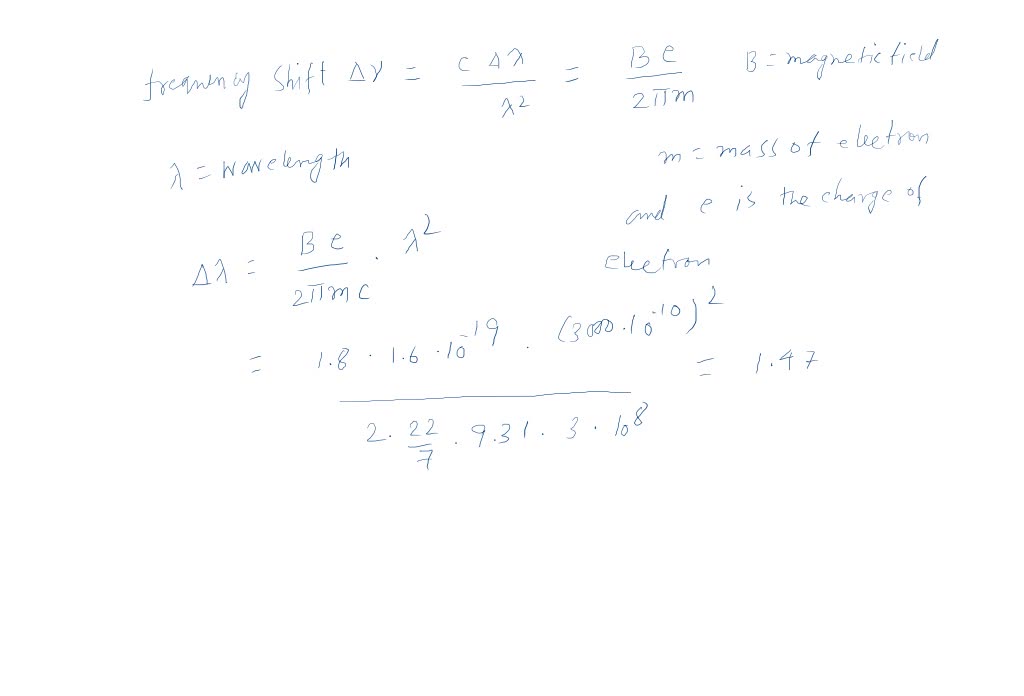 frequency shift Δν = c Δλ / λ² = B e / 2πm B = magnetic field
λ = wavelength m = mass of electron
and e is the charge of
electron
Δλ = B e / 2πmc · λ²
= 1.8 · 1.6 · 10⁻¹⁹ · (3000 · 10⁻¹⁰)² / 2 · 22/7 · 9.31 · 3 · 10⁸ = 1.47